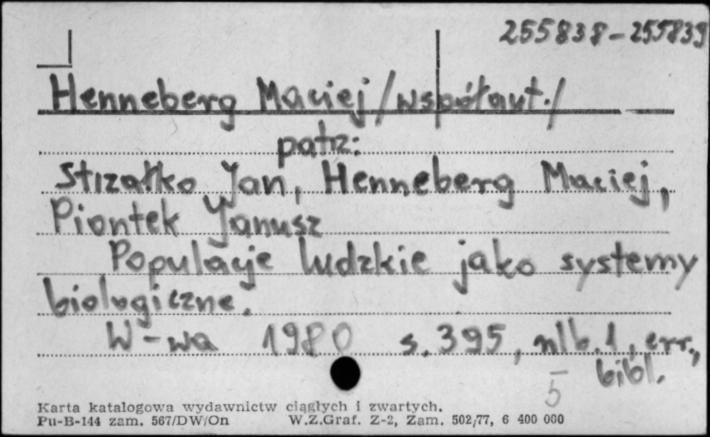 255838-255839
Henneberg Maciej /współaut./
patrz:
Strzałko Jan, Henneberg Maciej,
Piontek Janusz
Populacje ludzkie jako systemy
biologiczne.
W-wa 1980 s. 395, nlb. 1, err.,
bibl.
5
Karta katalogowa wydawnictw ciągłych i zwartych.
Pu-B-144 zam. 567/DW/On W.Z.Graf. Z-2, Zam. 502/77, 6 400 000